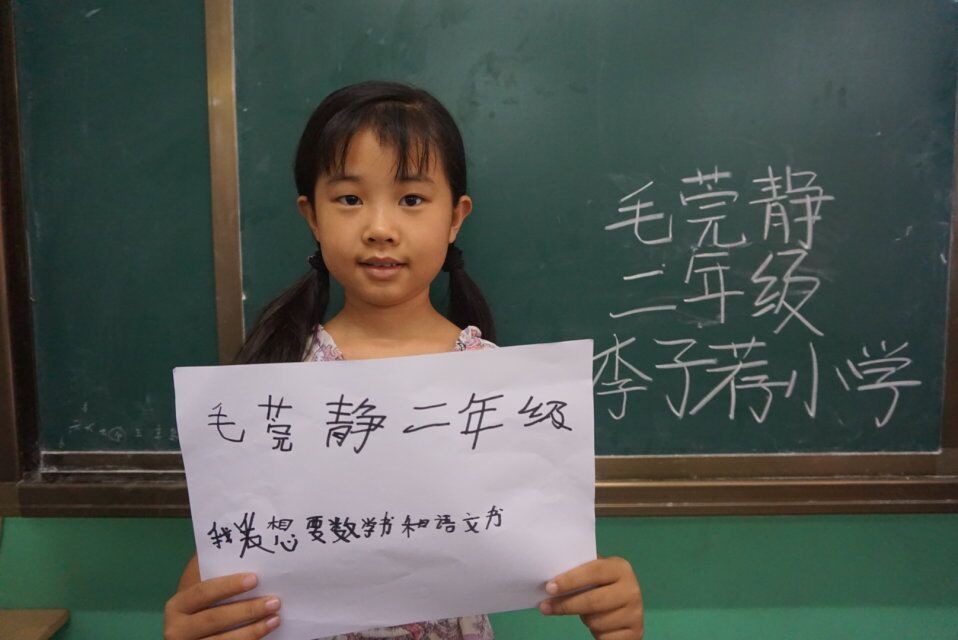 毛莞静
二年级
李子荐小学
毛莞静二年级
我发想要数学书和语文书